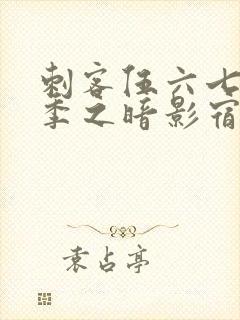 刺客伍六七
季之暗影宿
袁占亭